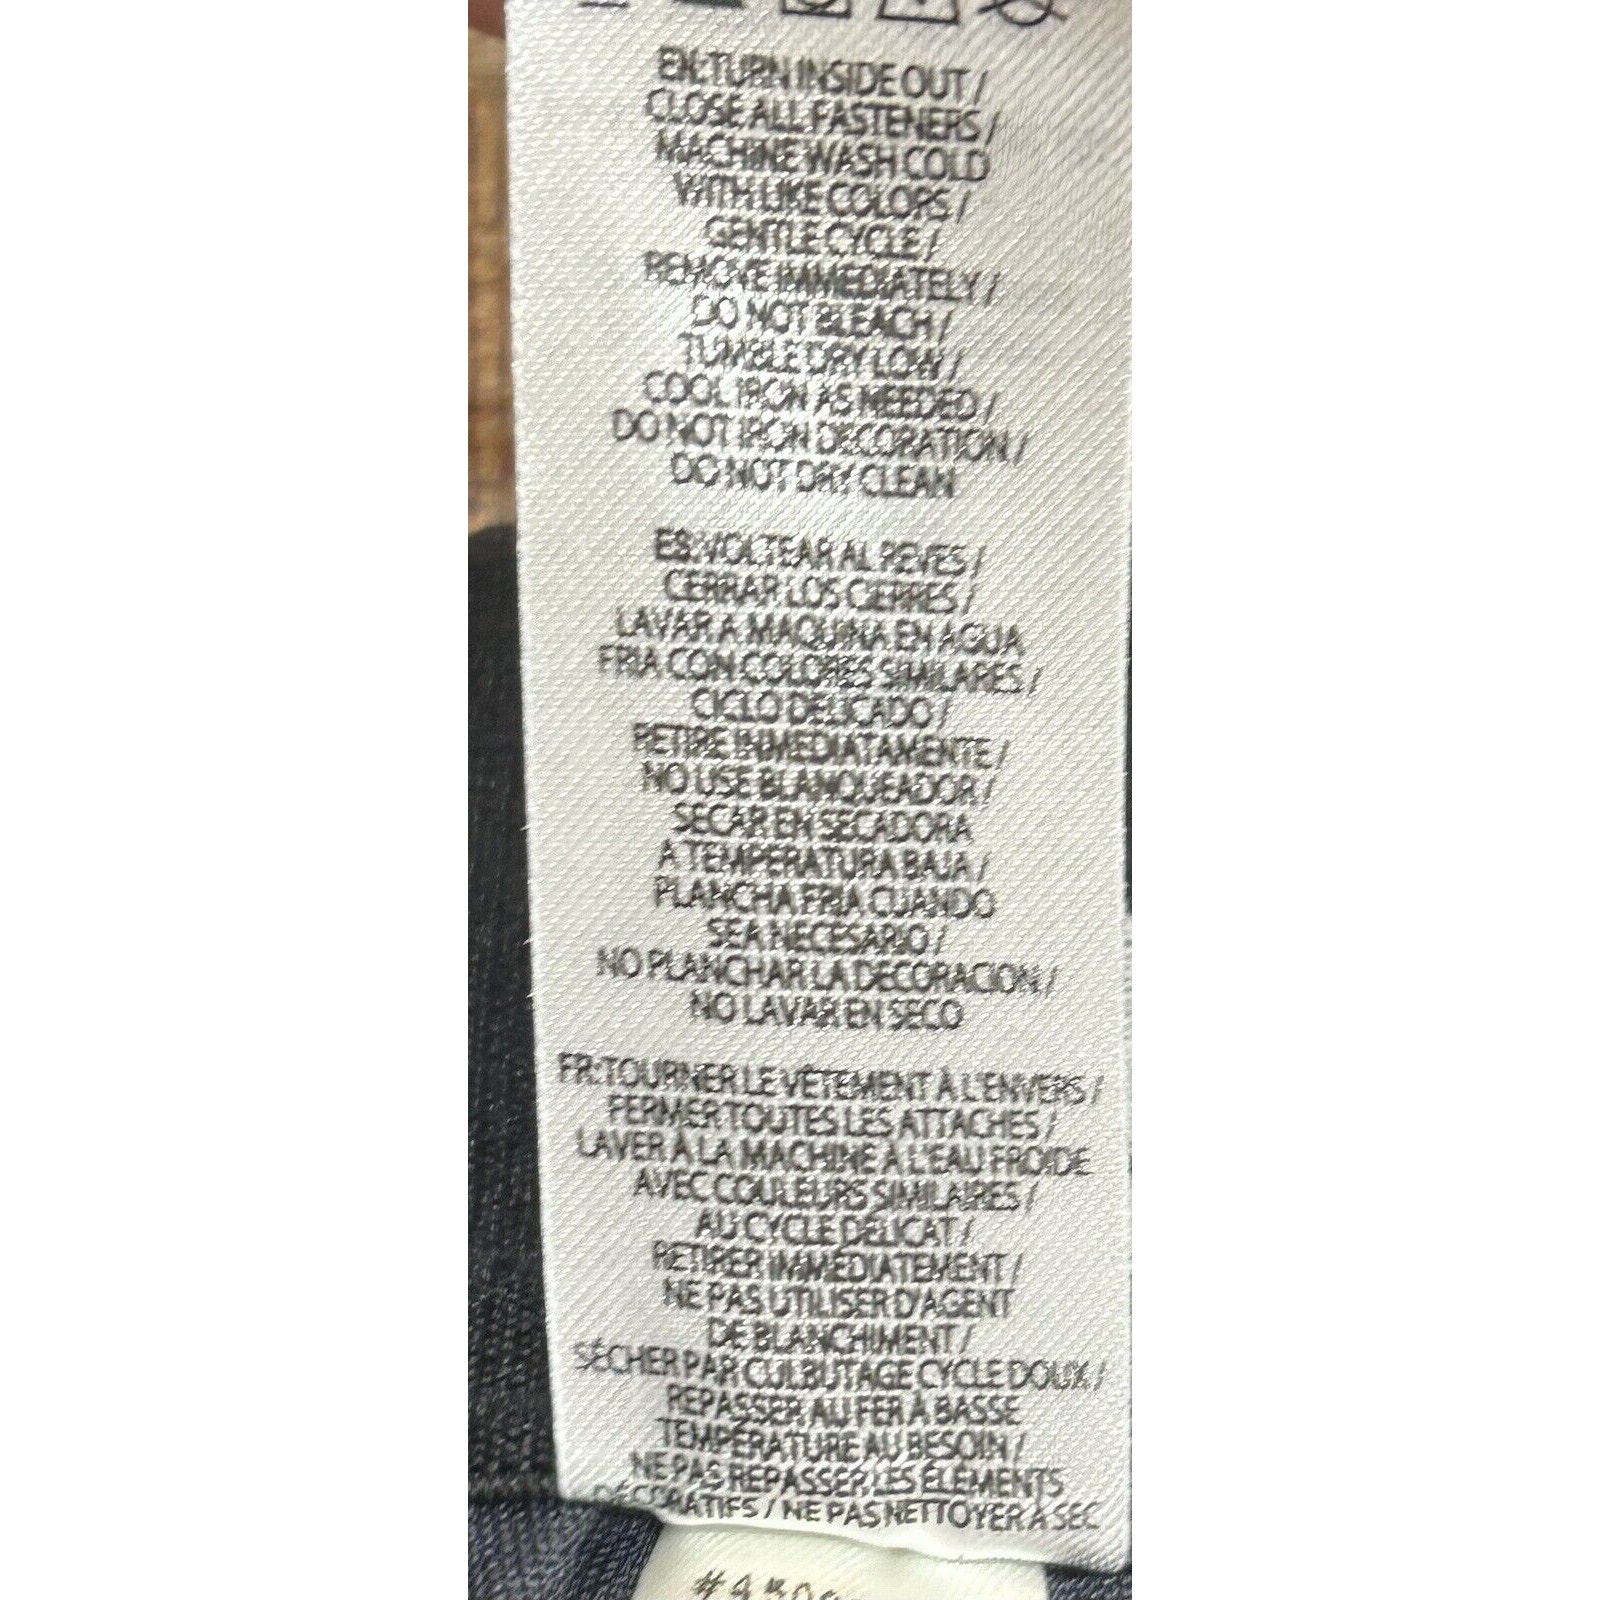 EN:TURN INSIDE OUT /
CLOSE ALL FASTENERS /
MACHINE WASH COLD
WITH LIKE COLORS /
GENTLE CYCLE /
REMOVE IMMEDIATELY /
DO NOT BLEACH /
TUMBLE DRY LOW /
COOL IRON AS NEEDED /
DO NOT IRON DECORATION /
DO NOT DRY CLEAN
ES:VOLTEAR AL REVES /
CERRAR LOS CIERRES /
LAVAR A MAQUINA EN AGUA
FRIA CON COLORES SIMILARES /
CICLO DELICADO /
RETIRE INMEDIATAMENTE /
NO USE BLANQUEADOR /
SECAR EN SECADORA
A TEMPERATURA BAJA /
PLANCHA FRIA CUANDO
SEA NECESARIO /
NO PLANCHAR LA DECORACION /
NO LAVAR EN SECO
FR:TOURNER LE VÊTEMENT À L'ENVERS /
FERMER TOUTES LES ATTACHES /
LAVER À LA MACHINE À L'EAU FROIDE
AVEC COULEURS SIMILAIRES /
AU CYCLE DÉLICAT /
RETIRER IMMÉDIATEMENT /
NE PAS UTILISER D'AGENT
DE BLANCHIMENT /
SÉCHER PAR CULBUTAGE CYCLE DOUX /
REPASSER AU FER À BASSE
TEMPÉRATURE AU BESOIN /
NE PAS REPASSER LES ÉLÉMENTS
DÉCORATIFS / NE PAS NETTOYER À SEC